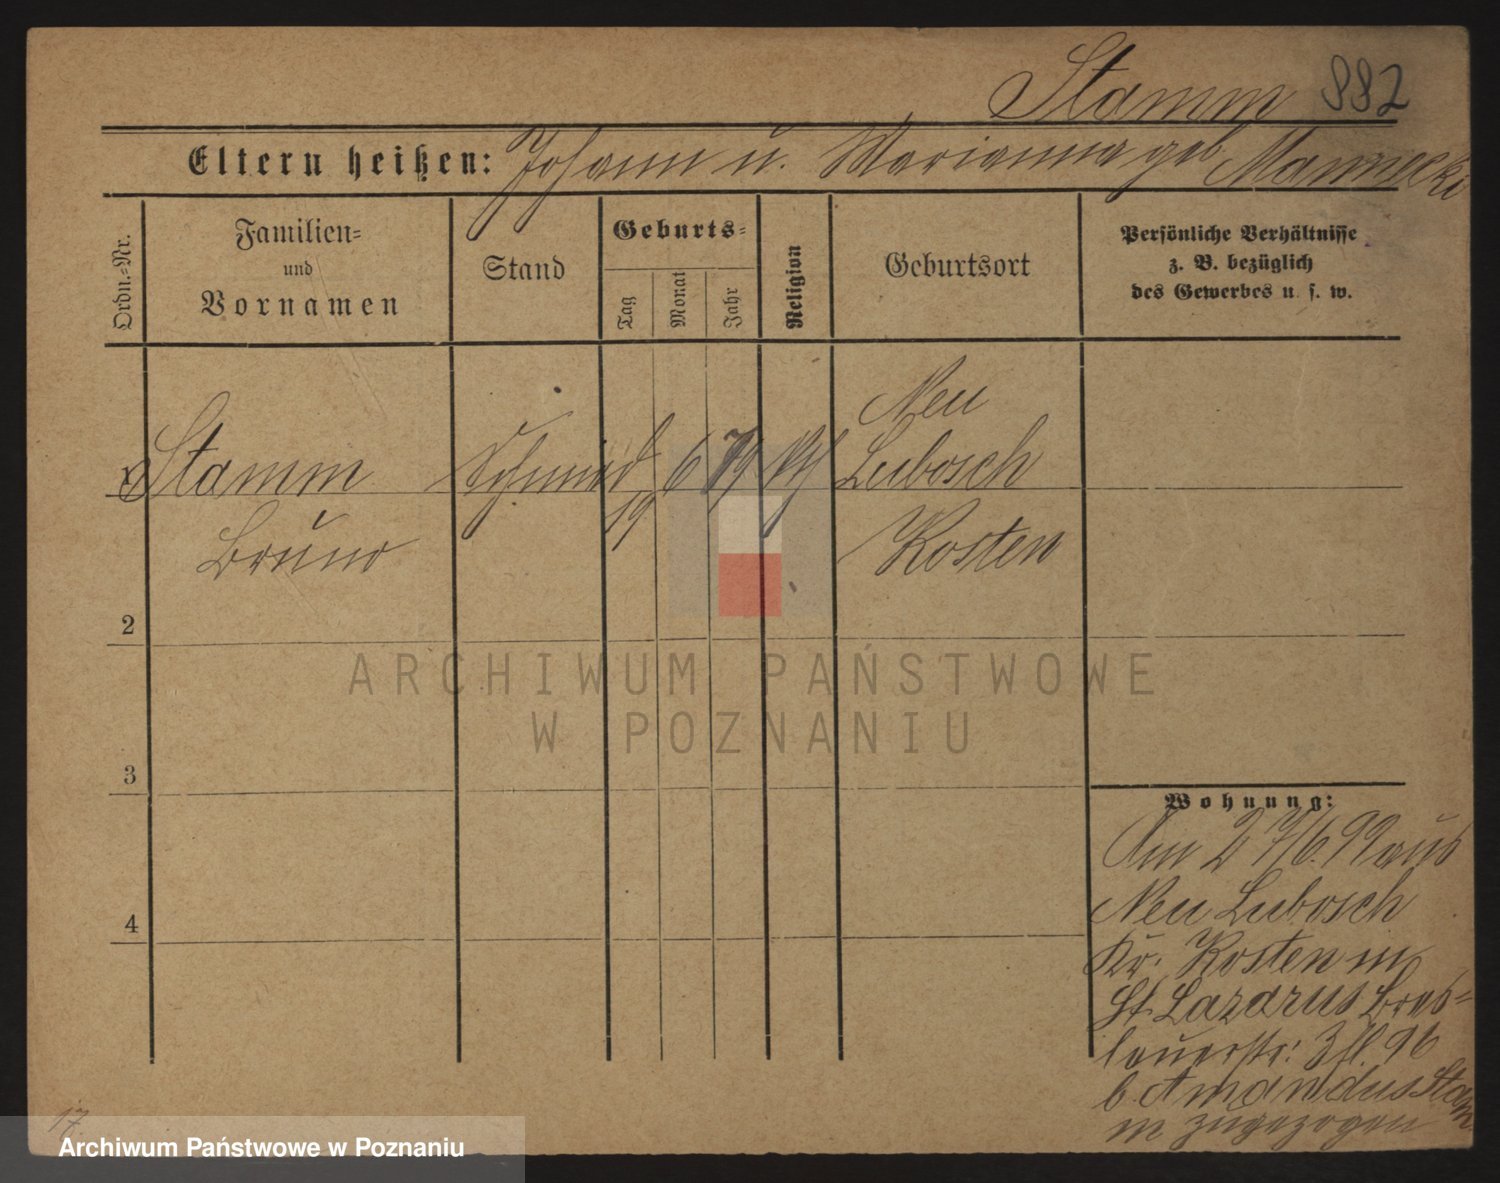 Stamm 882
Eltern heißen: Johann u. Marianna geb.
Ordn.=Nr.
Familien=
und
Vornamen
Stand
Geburts=
Tag
Monat
Jahr
Religion
Geburtsort
Persönliche Verhältnisse
z. B. bezüglich
des Gewerbes u. s. w.
Neu
Stamm Schmied 6 79 Lubosch
19
Bruno Kosten
2
ARCHIWUM PAŃSTWOWE
W POZNANIU
3
Wohnung:
Am 27/6. 99 aus
Neu Lubosch
4
Kr. Kosten in
St. Lazarus Bres=
lauerstr: 96
b. Amandus Stam
m zugezogen
17
Archiwum Państwowe w Poznaniu